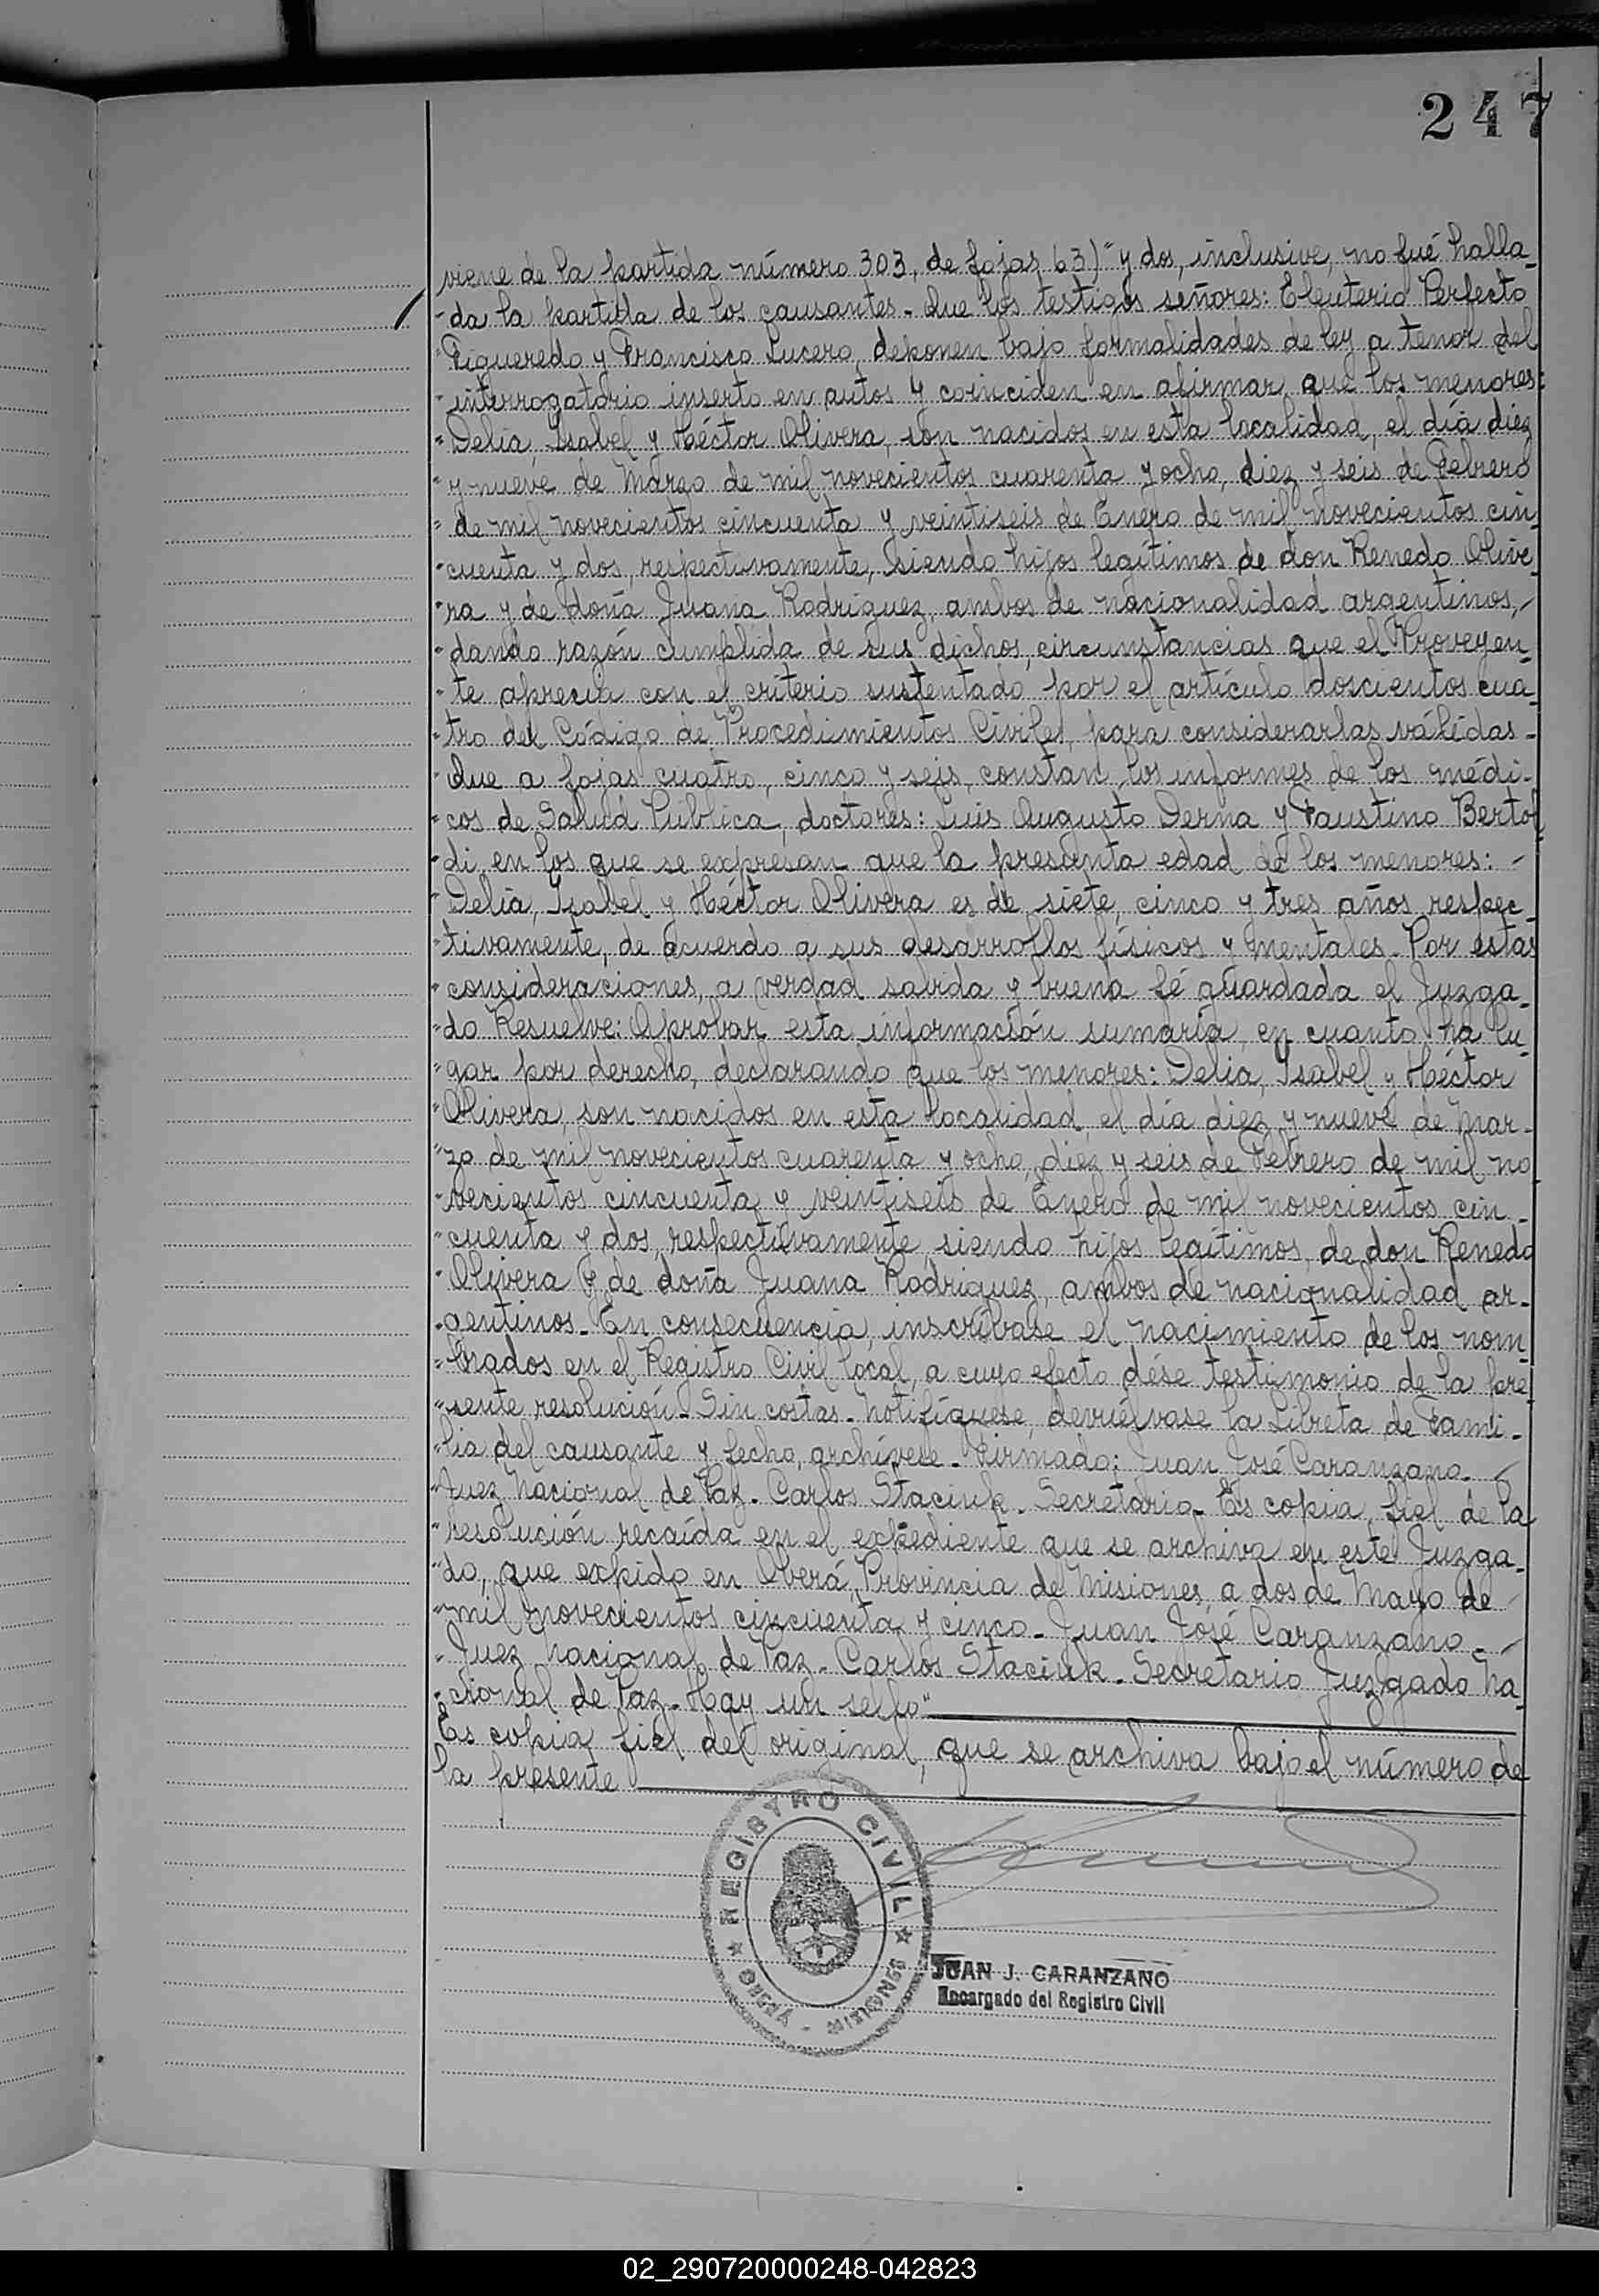 247
viene de la partida número 303, de fojas 63)" y dos, inclusive, no fué halla-
"da la partida de los causantes.- Que los testigos señores: Eleuterio Perfecto
"Figueredo y Francisco Lucero, deponen bajo formalidades de ley a tenor del
"interrogatorio inserto en autos y coinciden en afirmar que los menores:
"Delia, Isabel y Héctor Olivera, son nacidos en esta localidad, el día diez
"y nueve de Marzo de mil novecientos cuarenta y ocho, diez y seis de Febrero
"de mil novecientos cincuenta y veintiseis de Enero de mil novecientos cin
"cuenta y dos, respectivamente, siendo hijos legítimos de don Renedo Olive-
"ra y de doña Juana Rodriguez, ambos de nacionalidad argentinos,-
"dando razón cumplida de sus dichos, circunstancias que el Proveyen-
"te aprecia con el criterio sustentado por el artículo doscientos cua
"tro del Código de Procedimientos Civiles, para considerarlas válidas.-
"Que a fojas cuatro, cinco y seis, constan los informes de los médi-
"cos de Salud Pública, doctores: Luis Augusto Derna y Faustino Bertol
"di, en los que se expresan que la presunta edad de los menores: -
"Delia, Isabel y Héctor Olivera es de siete, cinco y tres años respec-
"tivamente, de acuerdo a sus desarrollos físicos y mentales.- Por estas
"consideraciones, a verdad sabida y buena fé guardada el Juzga-
"do Resuelve: Aprobar esta información sumaria, en cuanto ha lu-
"gar por derecho, declarando que los menores: Delia, Isabel y Héctor
"Olivera, son nacidos en esta localidad, el día diez y nueve de Mar-
"zo de mil novecientos cuarenta y ocho, diez y seis de Febrero de mil no
"vecientos cincuenta y veintiseis de Enero de mil novecientos cin-
"cuenta y dos, respectivamente, siendo hijos legítimos, de don Renedo
"Olivera y de doña Juana Rodriguez, ambos de nacionalidad ar-
"gentinos.- En consecuencia, inscríbase el nacimiento de los nom-
"brados en el Registro Civil local, a cuyo efecto dése testimonio de la pre
"sente resolución.- Sin costas.- Notifíquese, devuélvase la Libreta de Fami-
"lia del causante y fecho, archívese.- Firmado: Juan José Caranzano.-
"Juez Nacional de Paz.- Carlos Staciuk.- Secretario.- Es copia fiel de la
"resolución recaída en el expediente que se archiva en este Juzga-
"do, que expido en Oberá, Provincia de Misiones, a dos de Mayo de
"mil novecientos cincuenta y cinco.- Juan José Caranzano.-
"Juez Nacional de Paz.- Carlos Staciuk.- Secretario Juzgado Na-
"cional de Paz.- Hay un sello"
Es copia fiel del original, que se archiva bajo el número de
la presente
REGISTRO CIVIL
OBERÁ - MISIONES
JUAN J. CARANZANO
Encargado del Registro Civil
02_290720000248-042823